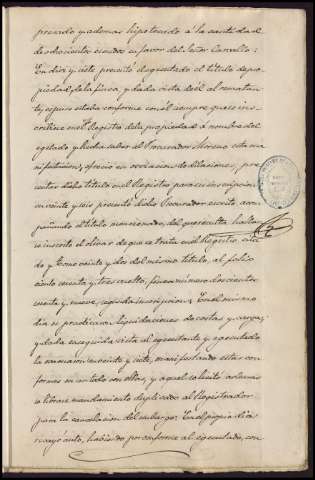 presado y además hipotecado á la cantidad
de doscientos escudos en favor del Señor Carrello:
En diez y siete presentó el ejecutado el título de pro-
piedad de la finca, y dada vista de él al rematan-
te, expuso estaba conforme con él siempre que se ins-
cribiese en el Registro de la propiedad á nombre del
egecutado y hecha saber al Procurador Moreno esta ma-
nifestacion, ofreció en evitacion de dilaciones, pre-
sentar dicho título en el Registro para su inscripcion
en veinte y seis presentó dicho Procurador escrito acom-
pañando el título mencionado, del que resulta hallar-
se inscrito el olivar de que se trata en el Registro, cita-
do y tomo veinte y dos del mismo título, al folio
ciento sesenta y tres vuelto, finca número doscientos
cuenta y nueve, segunda inscripcion: En el mismo
dia se practicaron liquidaciones de costas y cargas;
y dada en seguida vista al egecutante y egecutado
la evacuaron en veinte y siete, manifestando estar con-
formes en un todo con ellas, y aquel solicitó además
se librase mandamiento duplicado al Registrador
para la cancelacion del embargo. En el propio dia
recayó auto, habiendo por conforme al egecutado, con